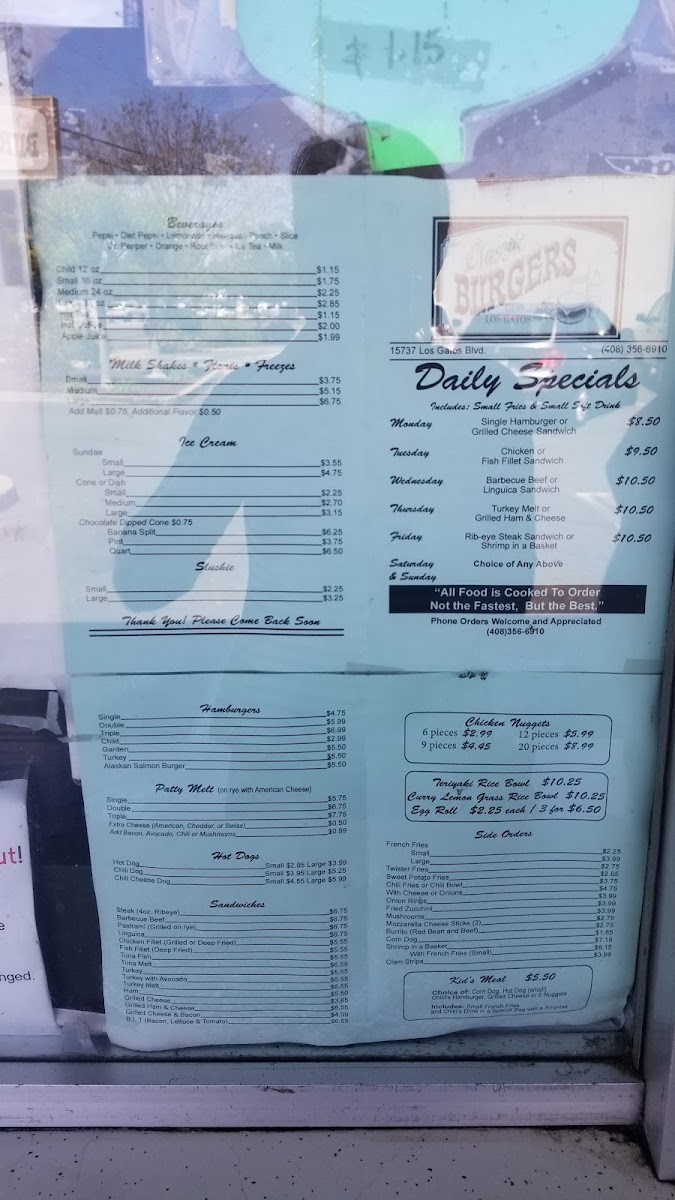 $ 1.15
Beverages
Pepsi • Diet Pepsi • Lemonade • Hawaiian Punch • Slice
Dr. Pepper • Orange • Root Beer • Ice Tea • Milk
Child 12 oz. $1.15
Small 16 oz. $1.75
Medium 24 oz. $2.25
oz. $2.85
Hot $1.15
Hot $2.00
Apple Juice $1.99
Milk Shakes • Floats • Freezes
Small $3.75
Medium $5.15
Large $6.75
Add Malt $0.75, Additional Flavor $0.50
Ice Cream
Sundae
Small $3.55
Large $4.75
Cone or Dish
Small $2.25
Medium $2.70
Large $3.15
Chocolate Dipped Cone $0.75
Banana Split $6.25
Pint $3.75
Quart $6.50
Slushie
Small $2.25
Large $3.25
Thank You! Please Come Back Soon
Classic
BURGERS
LOS GATOS
15737 Los Gatos Blvd. (408) 356-6910
Daily Specials
Includes: Small Fries & Small Soft Drink
Monday Single Hamburger or $8.50
Grilled Cheese Sandwich
Tuesday Chicken or $9.50
Fish Fillet Sandwich
Wednesday Barbecue Beef or $10.50
Linguica Sandwich
Thursday Turkey Melt or $10.50
Grilled Ham & Cheese
Friday Rib-eye Steak Sandwich or $10.50
Shrimp in a Basket
Saturday Choice of Any Above
& Sunday
"All Food is Cooked To Order
Not the Fastest, But the Best."
Phone Orders Welcome and Appreciated
(408)356-6910
Hamburgers
Single $4.75
Double $5.99
Triple $6.99
Child $2.99
Garden $5.50
Turkey $5.50
Alaskan Salmon Burger $5.50
Patty Melt (on rye with American Cheese)
Single $5.75
Double $6.75
Triple $7.75
Extra Cheese (American, Cheddar, or Swiss) $0.50
Add Bacon, Avocado, Chili or Mushrooms $0.99
Hot Dogs
Hot Dog Small $2.95 Large $3.99
Chili Dog Small $3.95 Large $5.25
Chili Cheese Dog Small $4.55 Large $5.99
Sandwiches
Steak (4oz. Ribeye) $6.75
Barbecue Beef $6.75
Pastrami (Grilled on rye) $6.75
Linguica $6.75
Chicken Fillet (Grilled or Deep Fried) $5.55
Fish Fillet (Deep Fried) $5.55
Tuna Fish
Tuna Melt
Turkey
Turkey with Avocado
Turkey Melt
Ham
Grilled Cheese
Grilled Ham & Cheese
Grilled Cheese & Bacon
B.L.T (Bacon, Lettuce & Tomato)
Chicken Nuggets
6 pieces $2.99 12 pieces $5.99
9 pieces $4.45 20 pieces $8.99
Teriyaki Rice Bowl $10.25
Curry Lemon Grass Rice Bowl $10.25
Egg Roll $2.25 each / 3 for $6.50
Side Orders
French Fries
Small $2.25
Large $3.99
Twister Fries $2.75
Sweet Potato Fries $2.95
Chili Fries or Chili Bowl $3.75
With Cheese or Onions $4.75
Onion Rings $3.99
Fried Zucchini $3.99
Mushrooms $3.99
Mozzarella Cheese Sticks (3) $2.75
Burrito (Red Bean and Beef) $1.85
Corn Dog
Shrimp in a Basket
With French Fries (Small)
Clam Strips $3.99
Kid's Meal $5.50
Choice of: Corn Dog, Hot Dog (small)
Child's Hamburger, Grilled Cheese or 6 Nuggets
Includes: Small French Fries
and Child's Drink in a Special Bag with a Surprise
ut!
e
nged.